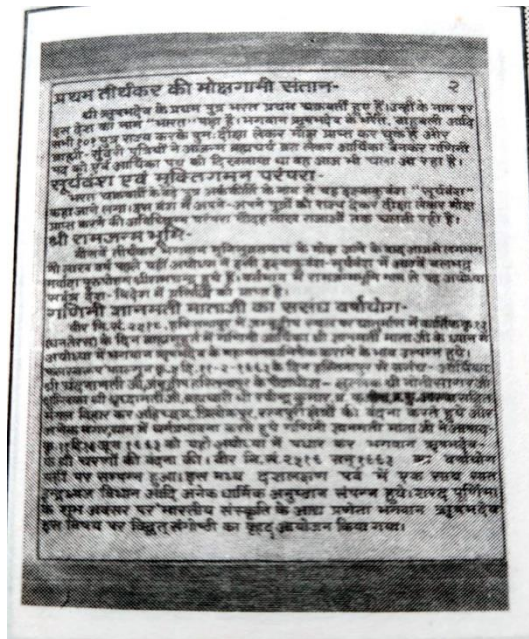 प्रथम तीर्थंकर की मोक्षगामी संतान- २
श्री ऋषभदेव के प्रथम पुत्र भरत प्रथम चक्रवर्ती हुए हैं। उन्हीं के नाम पर
इस देश का नाम "भारत" पड़ा है। भगवान ऋषभदेव के भरत, बाहुबली आदि
सभी १०१ पुत्र राज्य करके पुनः दीक्षा लेकर मोक्ष प्राप्त कर चुके हैं और
ब्राह्मी-सुंदरी पुत्रियों ने आजन्म ब्रह्मचर्य व्रत लेकर आर्यिका बनकर गणिनी
पद को एवं आर्यिका पद को दिखलाया था वह आज भी चला आ रहा है।
सूर्यवंश एवं मुक्तिगमन परंपरा-
भरत चक्रवर्ती के पुत्र अर्ककीर्ति के नाम से यह इक्ष्वाकु वंश "सूर्यवंश"
कहा जाने लगा। इस वंश में अपने-अपने पुत्रों को राज्य देकर दीक्षा लेकर मोक्ष
प्राप्त करने की अविच्छिन्न परंपरा चौदह लाख राजाओं तक चलती रही है।
श्री रामजन्म भूमि-
बीसवें तीर्थंकर भगवान मुनिसुव्रतनाथ के मोक्ष जाने के बाद आज से लगभग
नौ लाख वर्ष पहले यहीं अयोध्या में इसी इक्ष्वाकु वंश-सूर्यवंश में आठवें बलभद्र
मर्यादा पुरुषोत्तम श्री रामचन्द्र हुये हैं। वर्तमान में रामजन्मभूमि नाम से यह अयोध्या
देश-विदेश में प्रसिद्धि को प्राप्त है।
गणिनी ज्ञानमती माताजी का ससंघ वर्षायोग-
वीर नि.सं. २५१९, हस्तिनापुर में जम्बूद्वीप स्थल पर चातुर्मास में कार्तिक कृ. १३
(धनतेरस) के दिन ब्राह्ममुहूर्त में गणिनी आर्यिका श्री ज्ञानमती माताजी के ध्यान में
अयोध्या में भगवान ऋषभदेव के महामस्तकाभिषेक कराने के भाव उत्पन्न हुये।
११-२-१९९३ के दिन हस्तिनापुर से आर्यिका
श्री चंदनामती जी, क्षुल्लक श्री मोतीसागर जी
श्री श्रद्धामती जी, ब्रह्मचारी श्री रवीन्द्र कुमार
मंगल विहार कर अहिच्छत्र, त्रिलोकपुर, रत्नपुरी क्षेत्रों की वंदना करते हुये और
अनेक नगर, ग्राम में धर्मप्रभावना करते हुये गणिनी ज्ञानमती माता जी ने आषाढ़
जून १९९३ को यहाँ अयोध्या में पधार कर भगवान ऋषभदेव
के श्री चरणों की वंदना की। वीर नि.सं. २५१९ सन् १९९३ का वर्षायोग
यहाँ पर सम्पन्न हुआ। इस मध्य दशलक्षण पर्व में एक साथ पवन
इन्द्रध्वज विधान आदि अनेक धार्मिक अनुष्ठान संपन्न हुये। शरद् पूर्णिमा
के शुभ अवसर पर भारतीय संस्कृति के आद्य प्रणेता भगवान ऋषभदेव
इस विषय पर विद्वत् संगोष्ठी का वृहद् आयोजन किया गया।